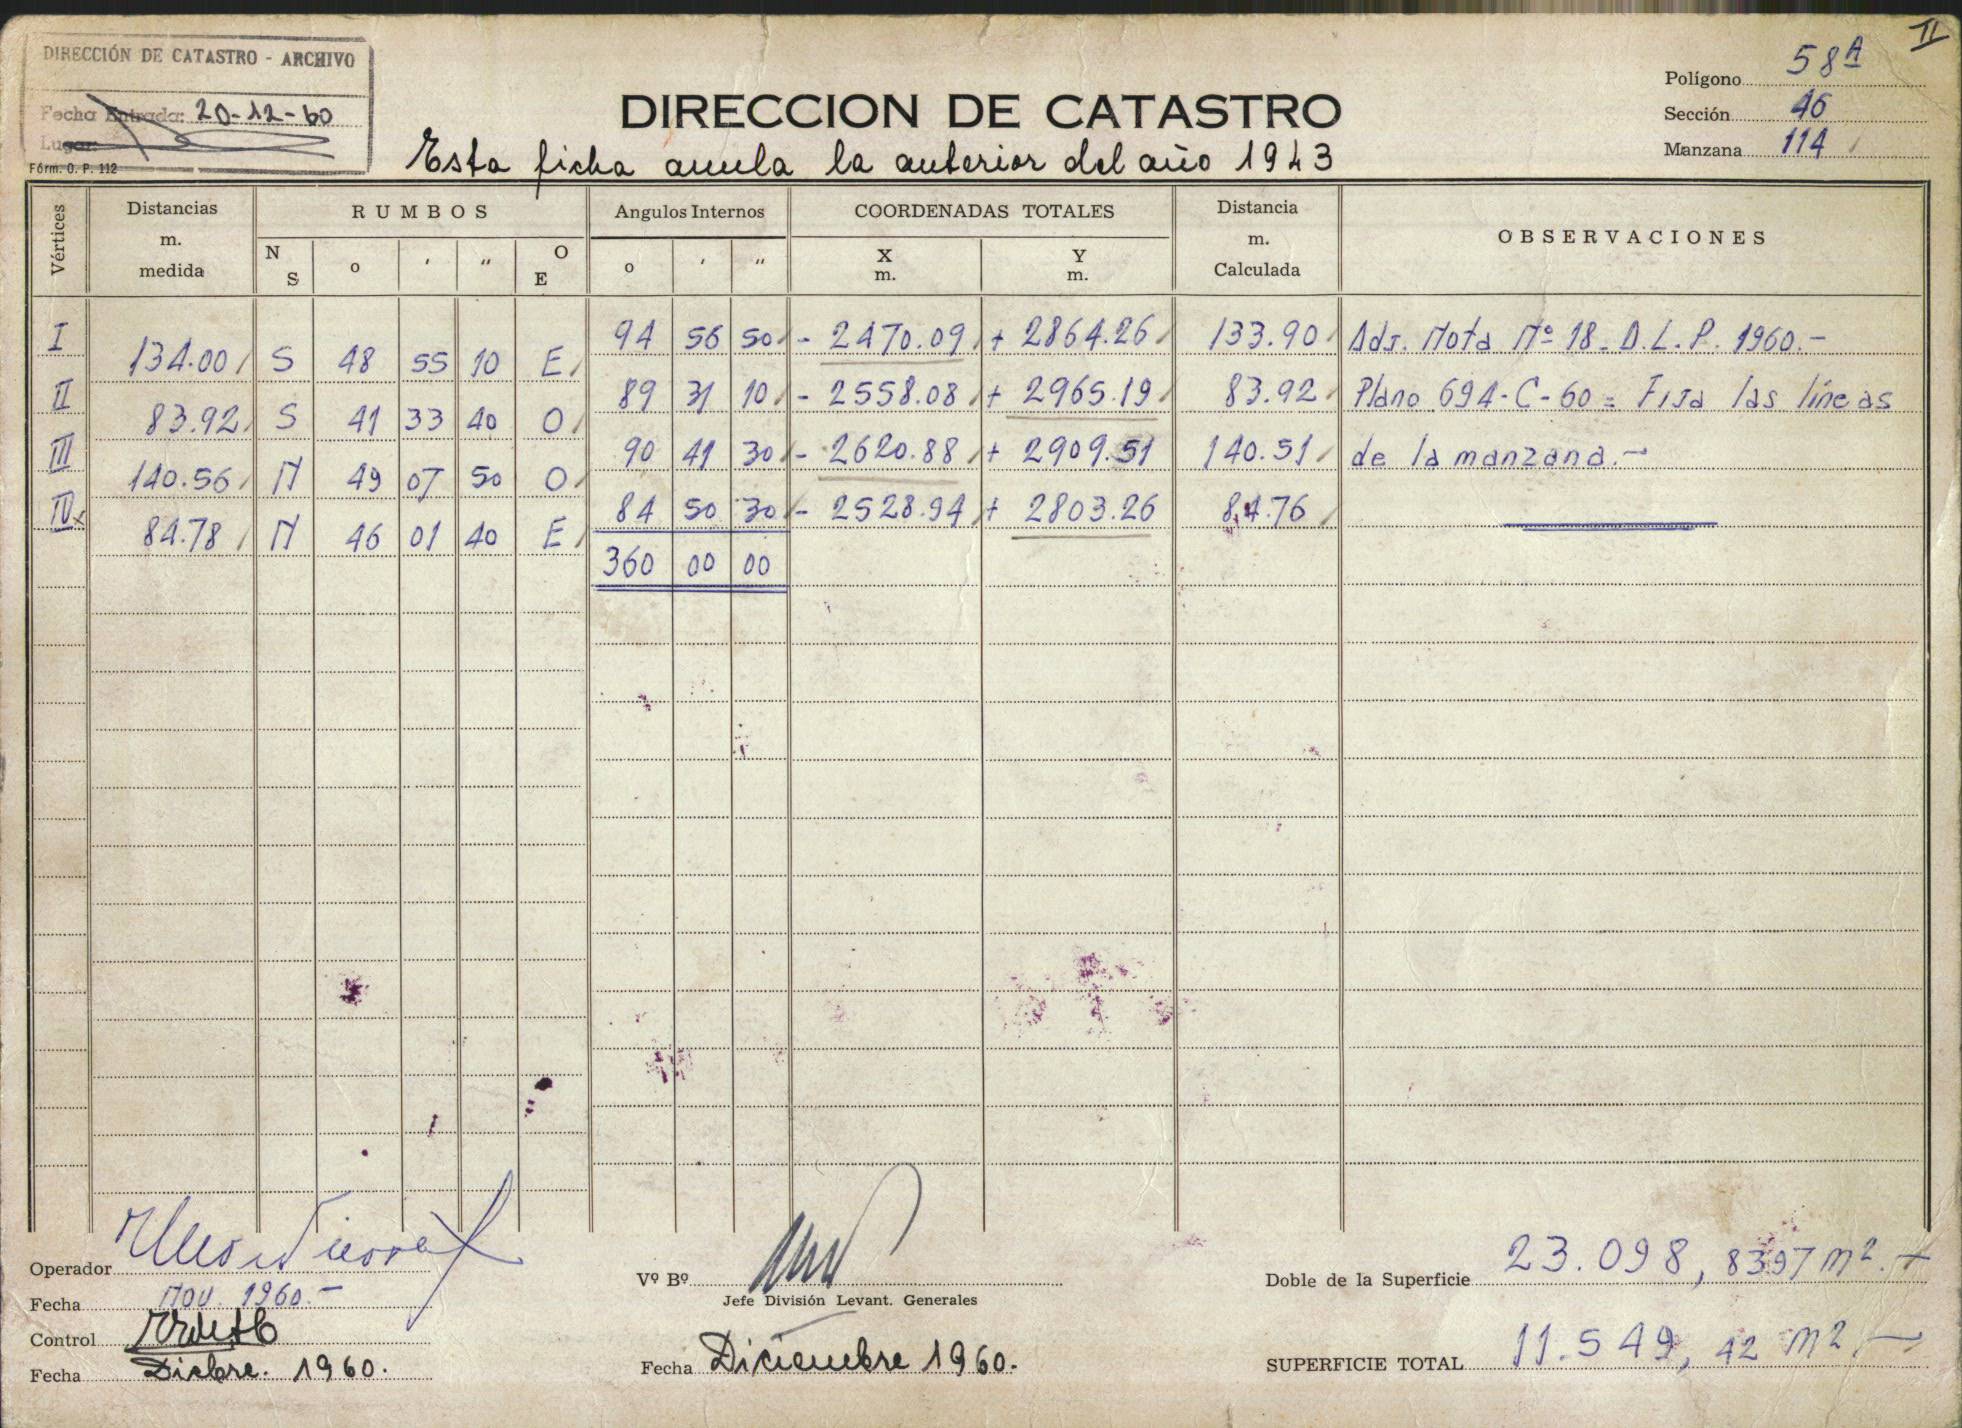 II
DIRECCIÓN DE CATASTRO - ARCHIVO
Fecha Entrada: 20-12-60
Lugar:
Fórm. O. P. 112
DIRECCION DE CATASTRO
Esta ficha anula la anterior del año 1943
Polígono 58A
Sección 46
Manzana 114
Vértices Distancias m. medida RUMBOS Angulos Internos COORDENADAS TOTALES Distancia m. Calculada OBSERVACIONES
N S o ' " O E o ' " X m. Y m.
I 94 56 50 - 2470.09 + 2864.26 133.90 Adj. Nota Nº 18 - D.L.P. 1960.-
134.00 S 48 55 10 E
II 89 31 10 - 2558.08 + 2965.19 83.92 Plano 694-C-60 = Fija las líneas
83.92 S 41 33 40 O
III 90 41 30 - 2620.88 + 2909.51 140.51 de la manzana.-
140.56 N 49 07 50 O
IV x 84 50 30 - 2528.94 + 2803.26 84.76
84.78 N 46 01 40 E
360 00 00
Operador
Fecha Nov. 1960.-
Control
Fecha Dicbre. 1960.
Vº Bº
Jefe División Levant. Generales
Fecha Diciembre 1960.
Doble de la Superficie 23.098, 8397 m2.-
SUPERFICIE TOTAL 11.549, 42 m2.-